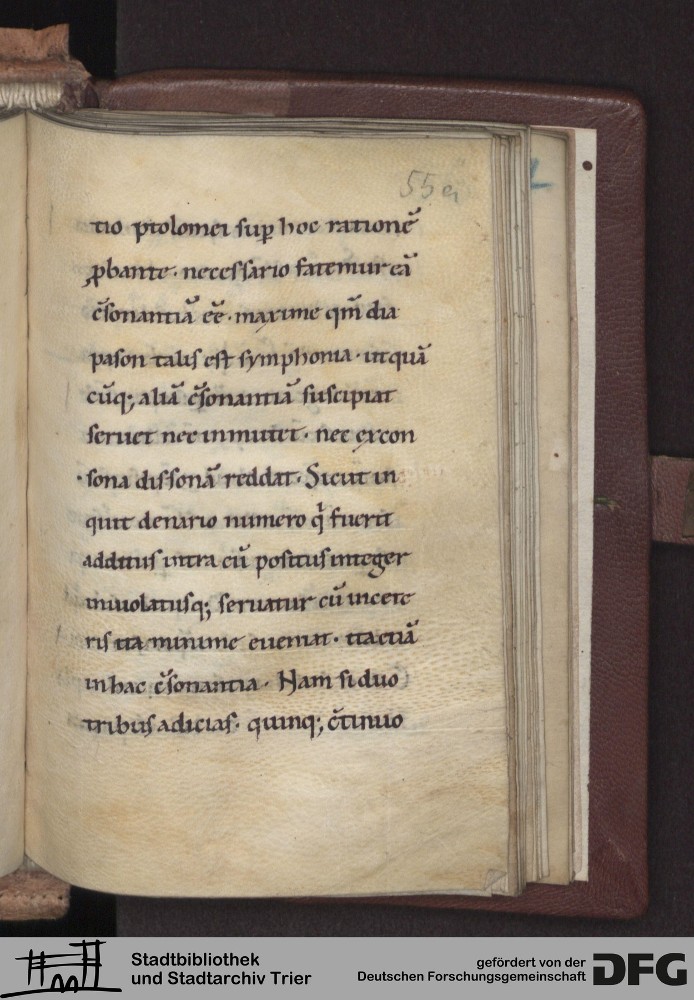 55a
tio ptolomei suꝑ hoc rationē
ꝓbante· necessario fatemur eā
c̄sonantiā eē· maxime qm̄ dia
pason talis est symphonia· ut quā
cūq; aliā c̄sonantiā suscipiat
seruet nec inmutet· nec ex con
sona dissonā reddat· Sicut in
quit denario numero q̇ fuerit
additus intra eū positus integer
inuiolatusq; seruatur cū in cete
ris ita minime eueniat· ita etiā
in hac c̄sonantia· Nam si duo
tribus adicias· quinq; c̄tinuo
Stadtbibliothek
und Stadtarchiv Trier
gefördert von der
Deutschen Forschungsgemeinschaft
DFG